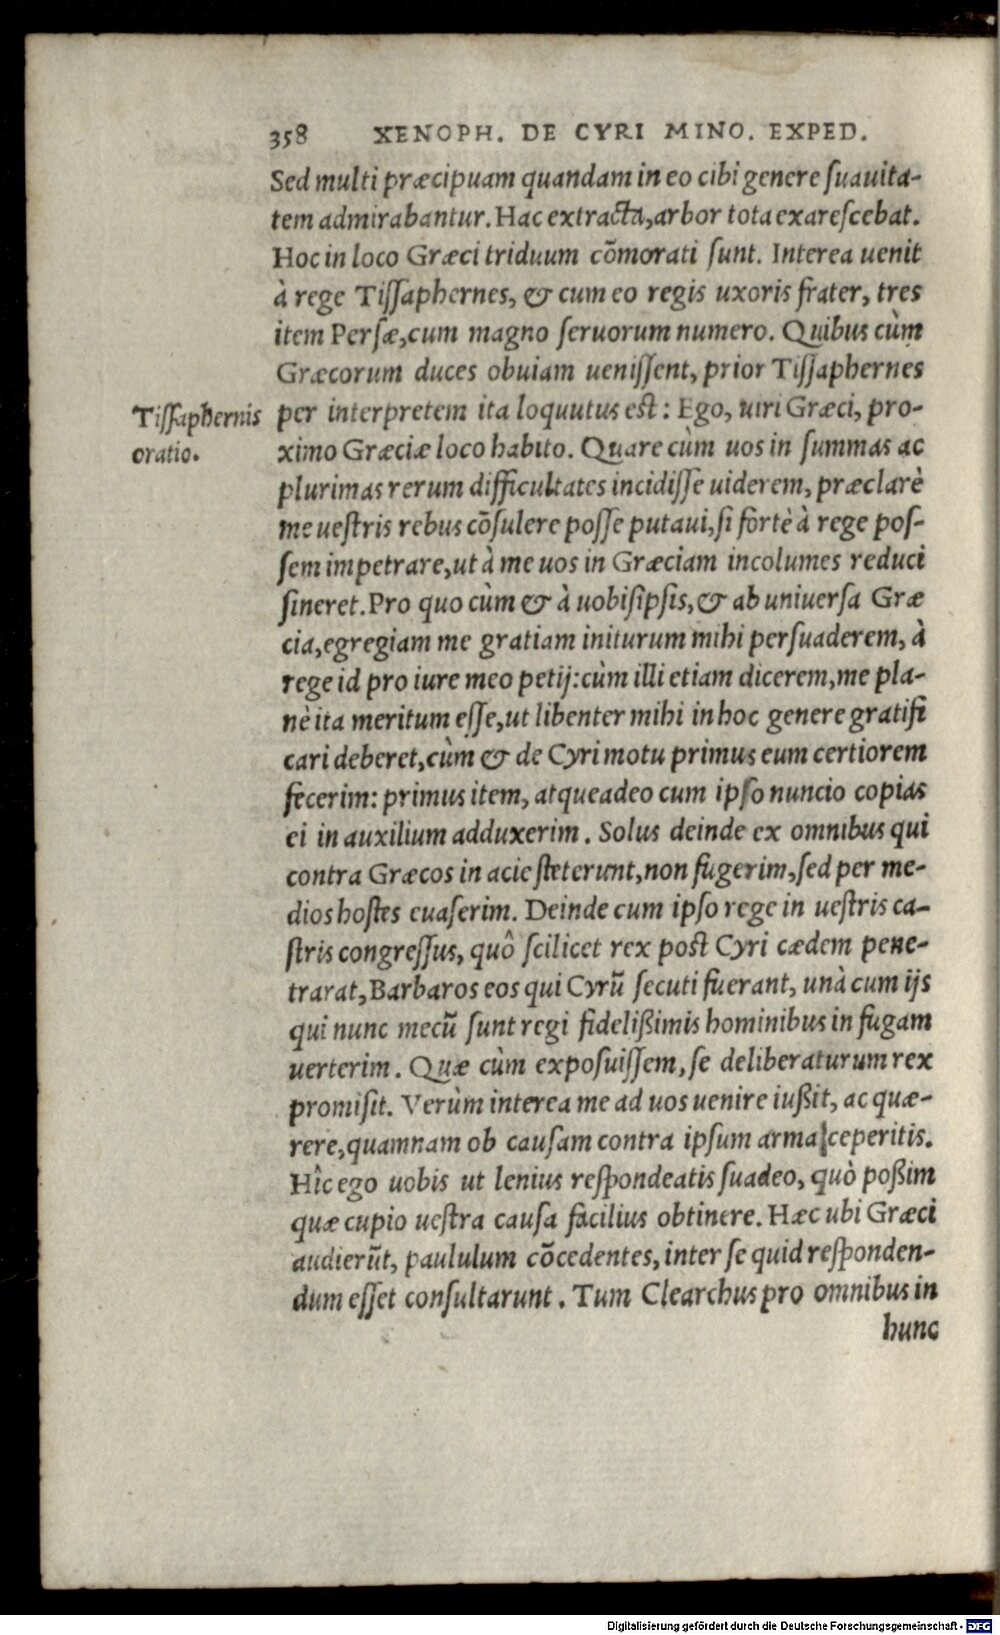 358 XENOPH. DE CYRI MINO. EXPED.
Sed multi præcipuam quandam in eo cibi genere ſuauita-
tem admirabantur. Hac extracta, arbor tota exareſcebat.
Hoc in loco Græci triduum cõmorati ſunt. Interea uenit
à rege Tiſſaphernes, & cum eo regis uxoris frater, tres
item Perſæ, cum magno ſeruorum numero. Quibus cùm
Græcorum duces obuiam ueniſſent, prior Tiſſaphernes
Tiſſaphernis
oratio.
per interpretem ita loquutus est: Ego, uiri Græci, pro-
ximo Græciæ loco habito. Quare cùm uos in ſummas ac
plurimas rerum difficultates incidiſſe uiderem, præclarè
me ueſtris rebus cõſulere poſſe putaui, ſi fortè à rege poſ-
ſem impetrare, ut à me uos in Græciam incolumes reduci
ſineret. Pro quo cùm & à uobiſipſis, & ab uniuerſa Græ
cia, egregiam me gratiam initurum mihi perſuaderem, à
rege id pro iure meo petij: cùm illi etiam dicerem, me pla-
nè ita meritum eſſe, ut libenter mihi in hoc genere gratifi
cari deberet, cùm & de Cyri motu primus eum certiorem
fecerim: primus item, atque adeo cum ipſo nuncio copias
ei in auxilium adduxerim. Solus deinde ex omnibus qui
contra Græcos in acie ſteterunt, non fugerim, ſed per me-
dios hoſtes euaſerim. Deinde cum ipſo rege in ueſtris ca-
ſtris congreſſus, quô ſcilicet rex post Cyri cædem pene-
trarat, Barbaros eos qui Cyrũ ſecuti fuerant, unà cum ijs
qui nunc mecũ ſunt regi fidelißimis hominibus in fugam
uerterim. Quæ cùm expoſuiſſem, ſe deliberaturum rex
promiſit. Verùm interea me ad uos uenire iußit, ac quæ-
rere, quamnam ob cauſam contra ipſum arma ceperitis.
Hîc ego uobis ut lenius reſpondeatis ſuadeo, quò poßim
quæ cupio ueſtra cauſa facilius obtinere. Hæc ubi Græci
audierũt, paululum cõcedentes, inter ſe quid reſponden-
dum eſſet conſultarunt. Tum Clearchus pro omnibus in
hunc
Digitalisierung gefördert durch die Deutsche Forschungsgemeinschaft - DFG